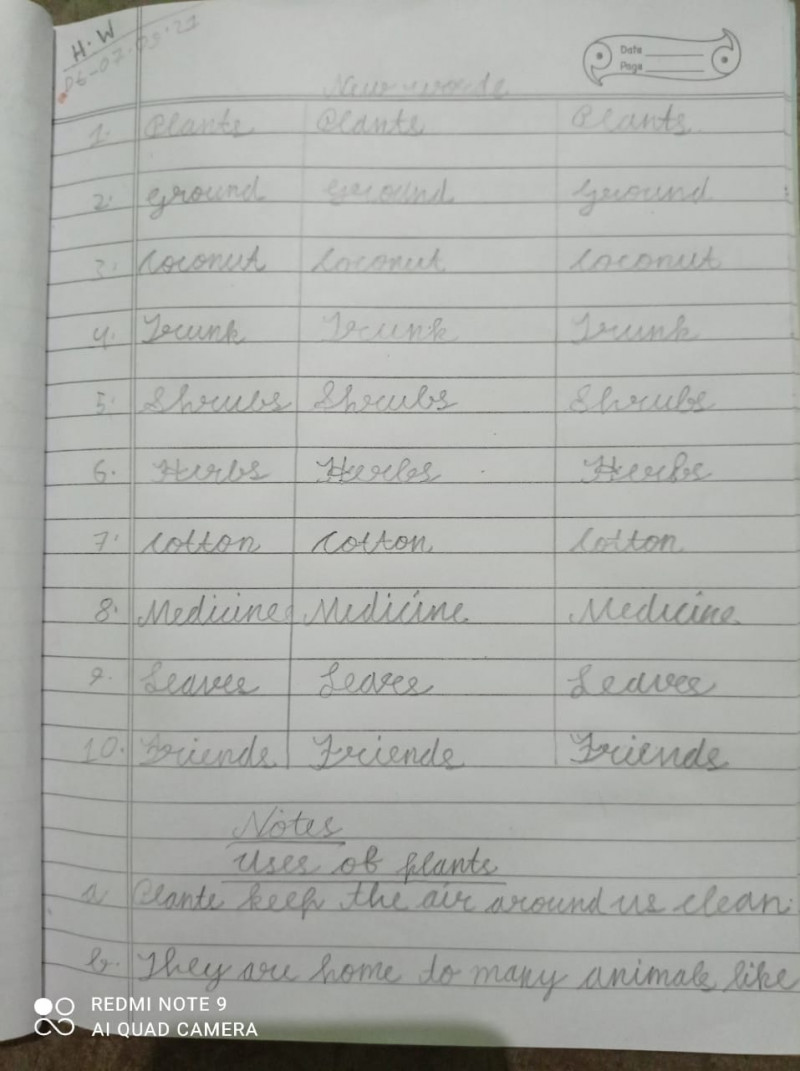 H.W
06-07-09-21
Date
Page
New words
1. Plants Plants Plants
2. Ground Ground Ground
3. Coconut Coconut Coconut
4. Trunk Trunk Trunk
5. Shrubs Shrubs Shrubs
6. Herbs Herbs Herbs
7. Cotton Cotton Cotton
8. Medicine Medicine Medicine
9. Leaves Leaves Leaves
10. Friends Friends Friends
Notes
Uses of plants
a Plants keep the air around us clean.
b. They are home to many animals like
REDMI NOTE 9
AI QUAD CAMERA